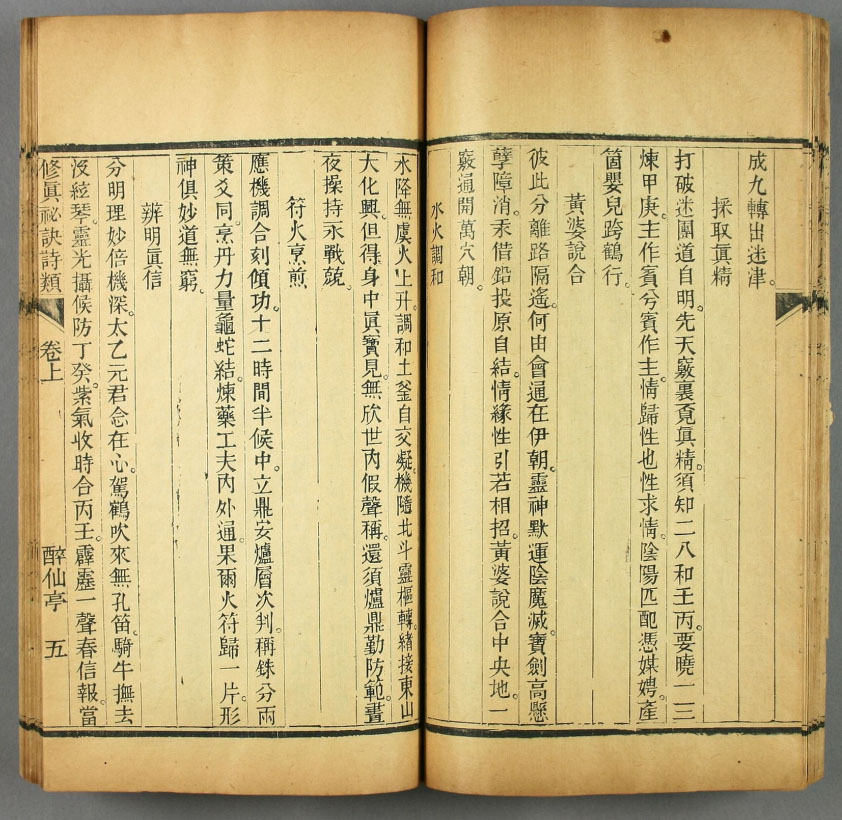 成九轉出迷津。
採取眞精
打破迷團道自明。先天竅裏覔眞精。須知二八和壬丙。要曉一三
煉甲庚。主作賓兮賓作主。情歸性也性求情。陰陽匹配憑媒娉。產
箇嬰兒跨鶴行。
黃婆說合
彼此分離路隔遙。何由會通在伊朝。靈神默運陰魔滅。寶劍高懸
孽障消。汞借鉛投原自結。情緣性引若相招。黃婆說合中央地。一
竅通開萬穴朝。
水火調和
水降無虞火上升。調和土釜自交凝。機隨北斗靈樞轉。緒接東山
大化興。但得身中眞寶見。無欣世內假聲稱。還須爐鼎勤防範。晝
夜操持永戰兢。
符火烹煎
應機調合刻傾功。十二時間半候中。立鼎安爐層次判。稱銖分兩
策爻同。烹丹力量龜蛇結。煉藥工夫內外通。果爾火符歸一片。形
神俱妙道無窮。
辨明眞信
分明理妙倍機深。太乙元君念在心。駕鶴吹來無孔笛。騎牛撫去
沒絃琴。靈光攝候防丁癸。紫氣收時合丙壬。霹靂一聲春信報。當
修眞祕訣詩類 卷上 醉仙亭 五